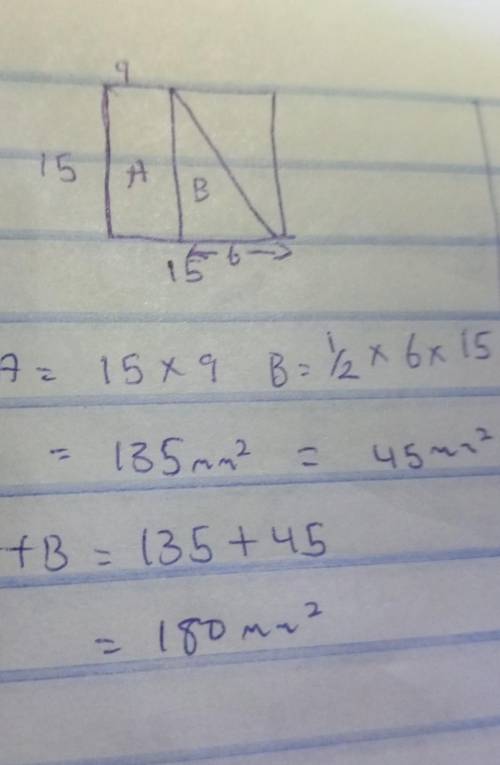 9
15 A B
15 6
A = 15 × 9 B = 1/2 × 6 × 15
= 135mm² = 45mm²
+B = 135 + 45
= 180mm²